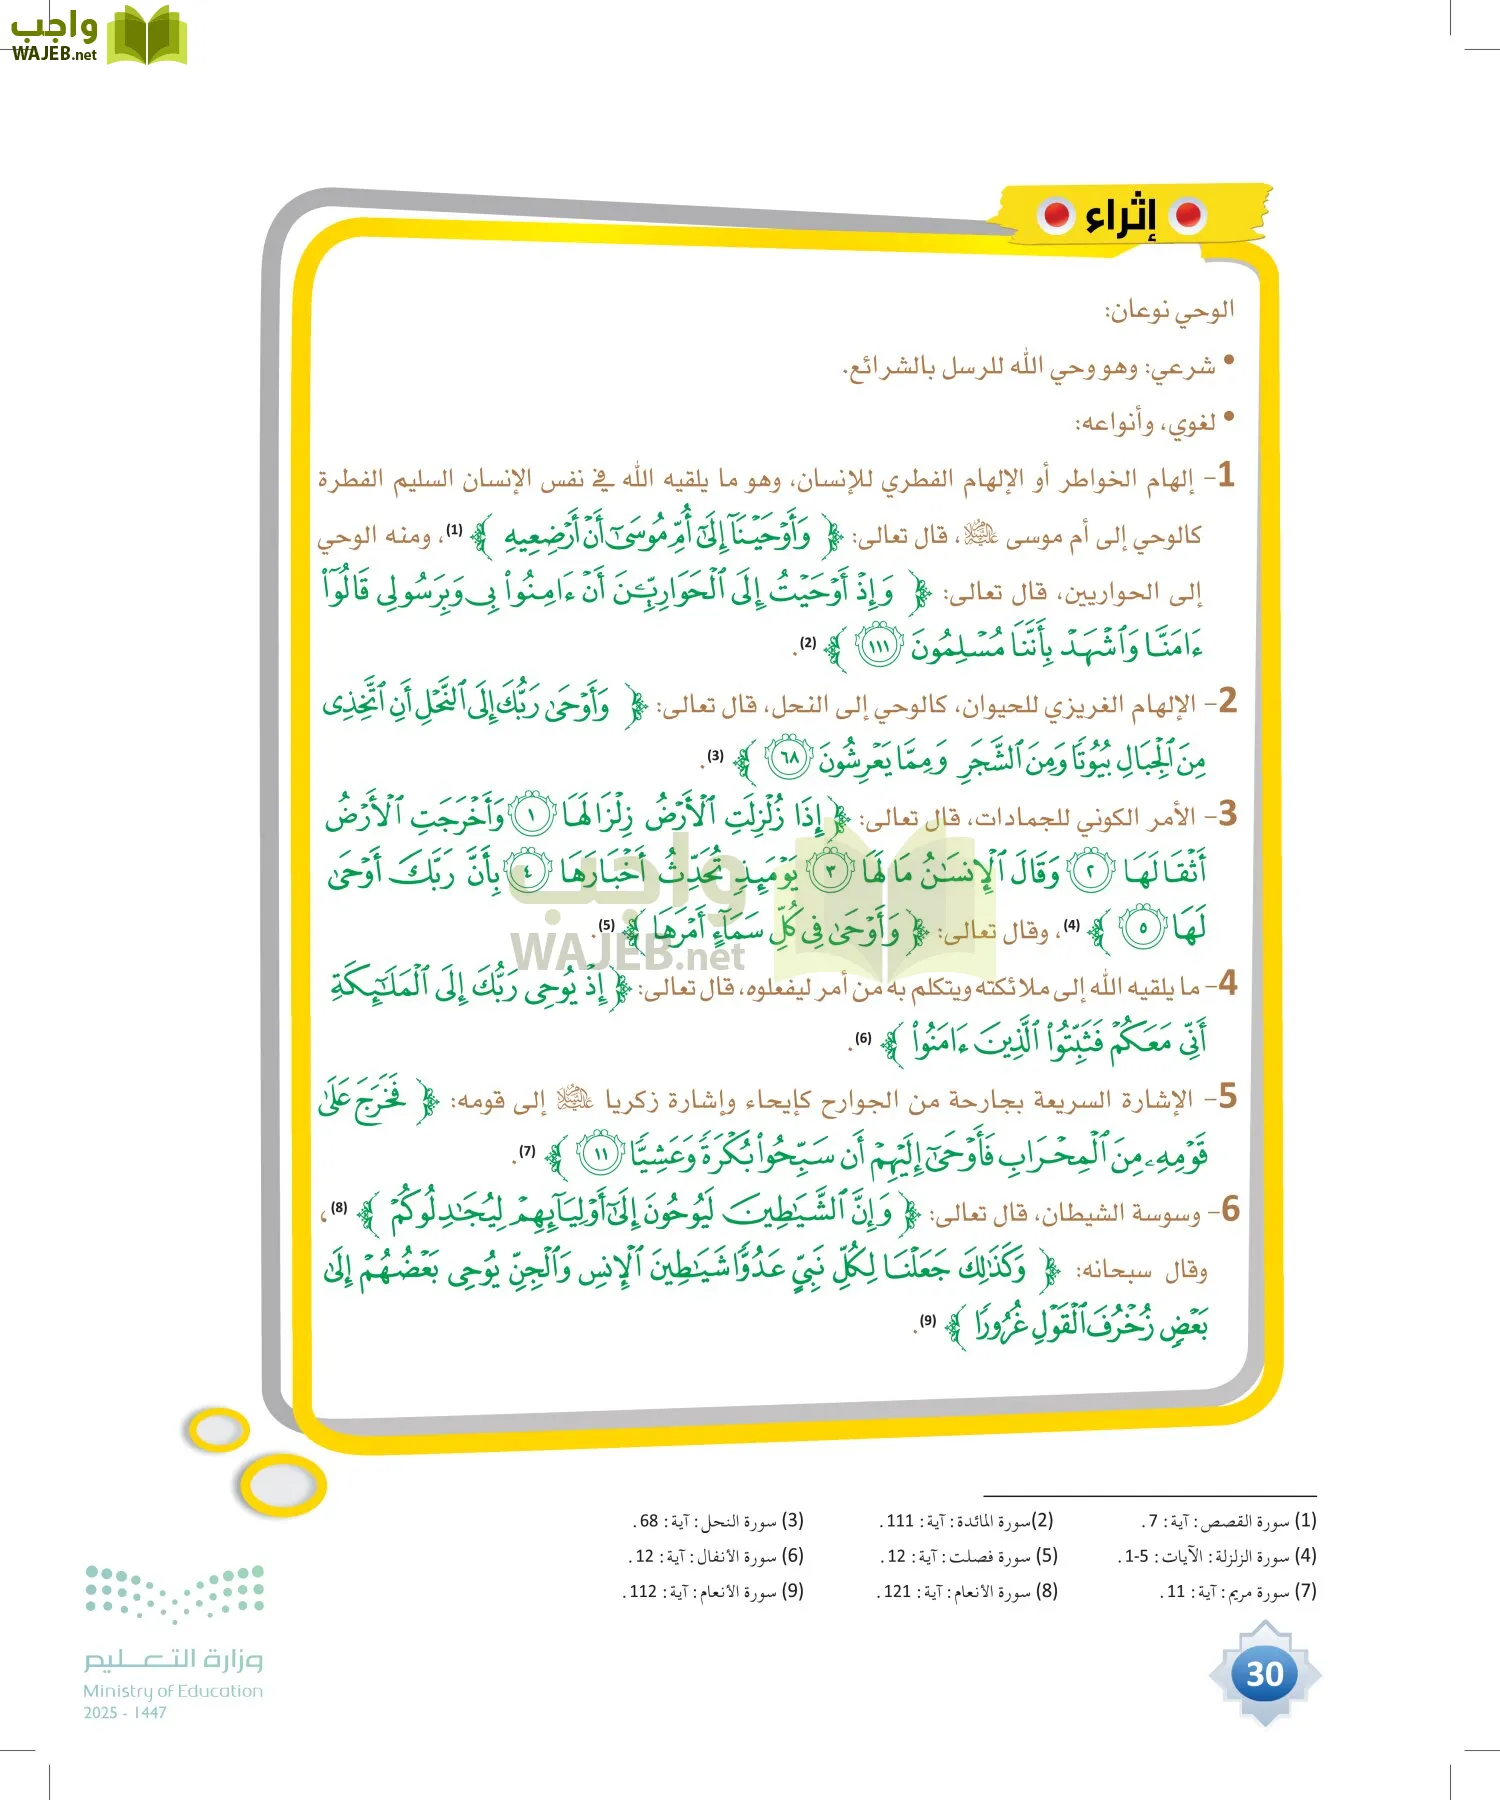 واجب
WAJEB.net
إثراء
الوحي نوعان:
• شرعي: وهو وحي الله للرسل بالشرائع.
• لغوي، وأنواعه:
1- إلهام الخواطر أو الإلهام الفطري للإنسان، وهو ما يلقيه الله في نفس الإنسان السليم الفطرة
كالوحي إلى أم موسى عليه السلام، قال تعالى: ﴿ وَأَوْحَيْنَآ إِلَىٰٓ أُمِّ مُوسَىٰٓ أَنْ أَرْضِعِيهِ ﴾ (1)، ومنه الوحي
إلى الحواريين، قال تعالى: ﴿ وَإِذْ أَوْحَيْتُ إِلَى ٱلْحَوَارِيِّـۧنَ أَنْ ءَامِنُوا۟ بِى وَبِرَسُولِى قَالُوٓا۟
ءَامَنَّا وَٱشْهَدْ بِأَنَّنَا مُسْلِمُونَ ١١١ ﴾ (2).
2- الإلهام الغريزي للحيوان، كالوحي إلى النحل، قال تعالى: ﴿ وَأَوْحَىٰ رَبُّكَ إِلَى ٱلنَّحْلِ أَنِ ٱتَّخِذِى
مِنَ ٱلْجِبَالِ بُيُوتًا وَمِنَ ٱلشَّجَرِ وَمِمَّا يَعْرِشُونَ ٦٨ ﴾ (3).
3- الأمر الكوني للجمادات، قال تعالى: ﴿ إِذَا زُلْزِلَتِ ٱلْأَرْضُ زِلْزَالَهَا ١ وَأَخْرَجَتِ ٱلْأَرْضُ
أَثْقَالَهَا ٢ وَقَالَ ٱلْإِنسَٰنُ مَا لَهَا ٣ يَوْمَئِذٍ تُحَدِّثُ أَخْبَارَهَا ٤ بِأَنَّ رَبَّكَ أَوْحَىٰ
لَهَا ٥ ﴾ (4)، وقال تعالى: ﴿ وَأَوْحَىٰ فِى كُلِّ سَمَآءٍ أَمْرَهَا ﴾ (5).
واجب
WAJEB.net
4- ما يلقيه الله إلى ملائكته ويتكلم به من أمر ليفعلوه، قال تعالى: ﴿ إِذْ يُوحِى رَبُّكَ إِلَى ٱلْمَلَٰٓئِكَةِ
أَنِّى مَعَكُمْ فَثَبِّتُوا۟ ٱلَّذِينَ ءَامَنُوا۟ ﴾ (6).
5- الإشارة السريعة بجارحة من الجوارح كإيحاء وإشارة زكريا عليه السلام إلى قومه: ﴿ فَخَرَجَ عَلَىٰ
قَوْمِهِۦ مِنَ ٱلْمِحْرَابِ فَأَوْحَىٰٓ إِلَيْهِمْ أَن سَبِّحُوا۟ بُكْرَةً وَعَشِيًّا ١١ ﴾ (7).
6- وسوسة الشيطان، قال تعالى: ﴿ وَإِنَّ ٱلشَّيَٰطِينَ لَيُوحُونَ إِلَىٰٓ أَوْلِيَآئِهِمْ لِيُجَٰدِلُوكُمْ ﴾ (8)،
وقال سبحانه: ﴿ وَكَذَٰلِكَ جَعَلْنَا لِكُلِّ نَبِىٍّ عَدُوًّا شَيَٰطِينَ ٱلْإِنسِ وَٱلْجِنِّ يُوحِى بَعْضُهُمْ إِلَىٰ
بَعْضٍ زُخْرُفَ ٱلْقَوْلِ غُرُورًا ﴾ (9).
(1) سورة القصص: آية: 7. (2) سورة المائدة: آية: 111. (3) سورة النحل: آية: 68.
(4) سورة الزلزلة: الآيات: 1-5. (5) سورة فصلت: آية: 12. (6) سورة الأنفال: آية: 12.
(7) سورة مريم: آية: 11. (8) سورة الأنعام: آية: 121. (9) سورة الأنعام: آية: 112.
وزارة التعليم
Ministry of Education
2025 - 1447
30